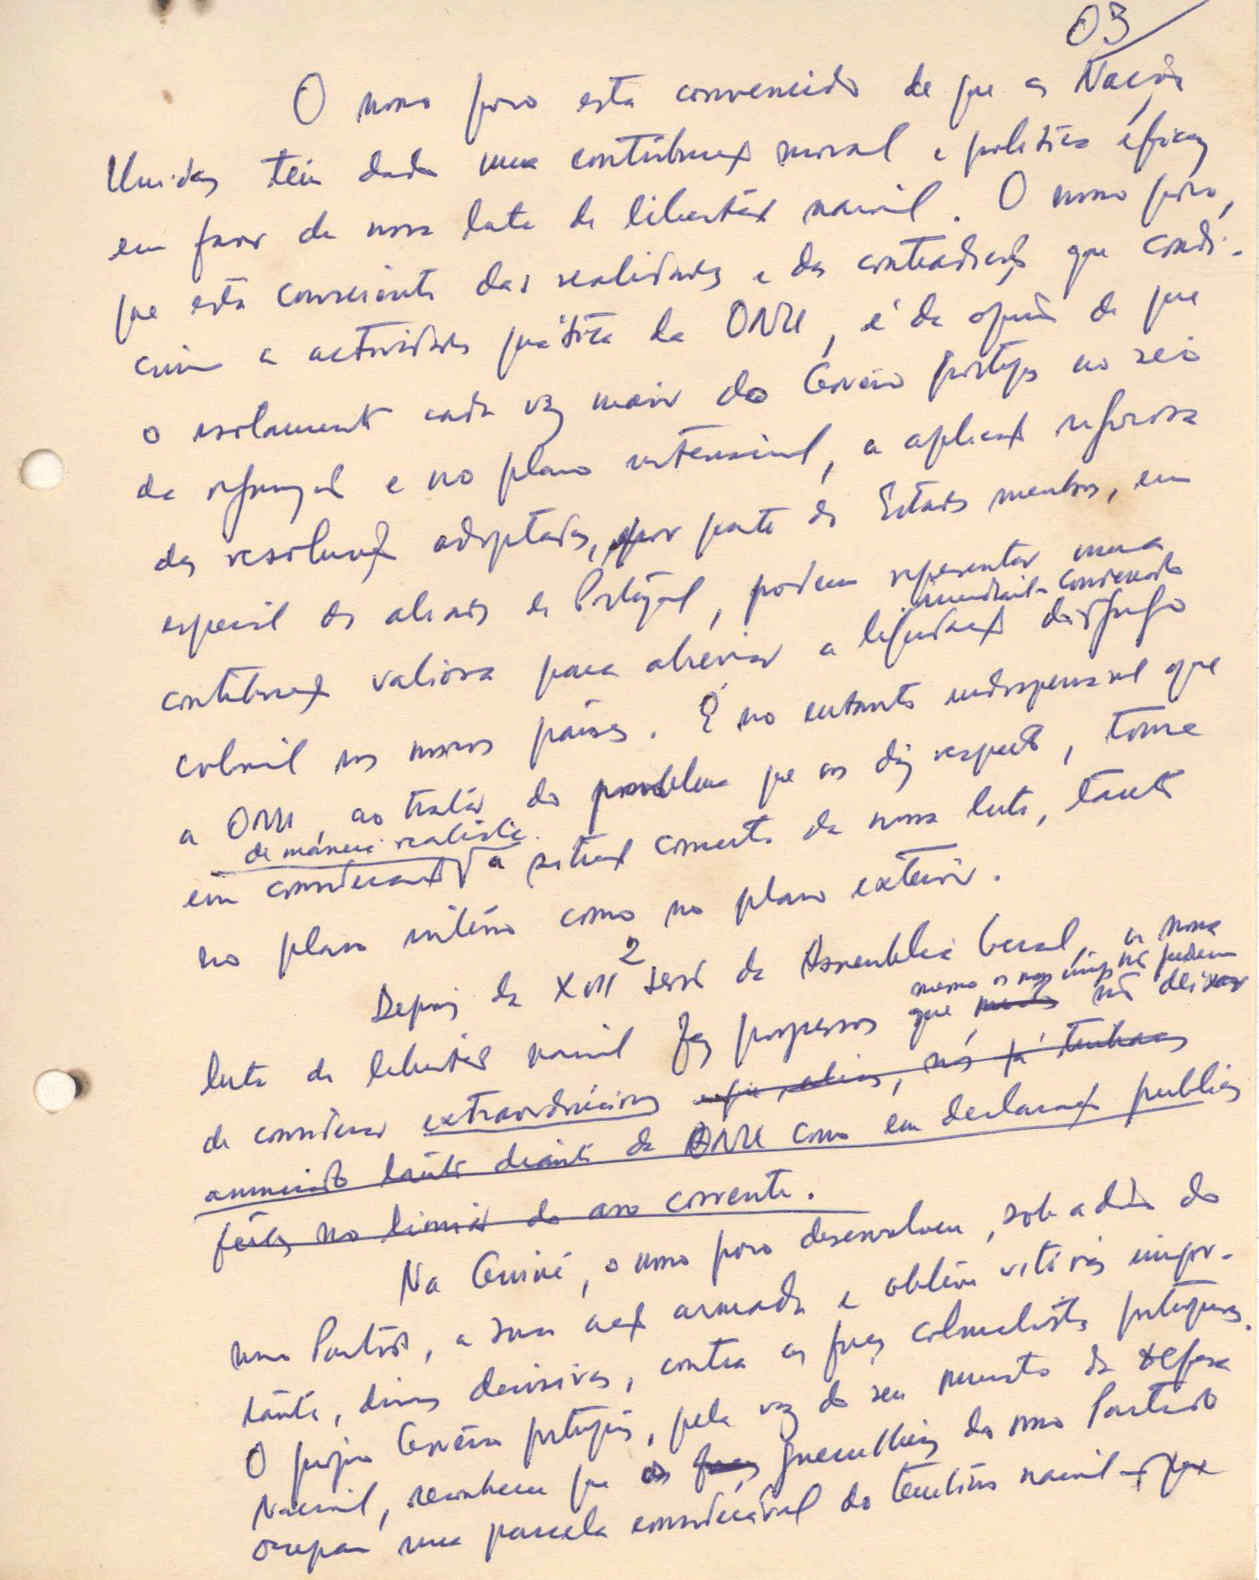 03
O nosso povo está convencido de que as Nações
Unidas têm dado uma contribuição moral e política eficaz
em favor da nossa luta de libertação nacional. O nosso povo,
que está consciente das realidades e das contradições que condi-
cionam a actividade prática da ONU, é da opinião de que
o isolamento cada vez maior do Govêrno português no seio
da organização e no plano internacional, a aplicação rigorosa
das resoluções adoptadas, por parte dos Estados membros, em
especial os aliados de Portugal, podem representar uma
contribuição valiosa para abreviar a liquidação do jugo
colonial nos nossos países. É no entanto indispensável que
a ONU, ao tratar do problema que nos diz respeito, tome
de maneira realista
em consideração a situação concreta da nossa luta, tanto
no plano interno como no plano exterior.
Depois da XVIIª sessão da Assembleia Geral, a nossa
mesmo os nossos inimigos não podem
luta de libertação nacional fez progressos que não deixar
de considerar extraordinários, nós já tinhamos
anunciado tanto diante da ONU como em declarações públicas
feitas no limiar do ano corrente.
Na Guiné, o nosso povo desenvolveu, sob a direcção do
nosso Partido, a sua acção armada e obteve vitórias impor-
tantes, decisivas, contra as forças colonialistas portuguesas.
O próprio Govêrno português, pela voz do seu ministro da defesa
Nacional, reconheceu que os guerrilheiros do nosso Partido
ocupam uma parcela considerável do território nacional